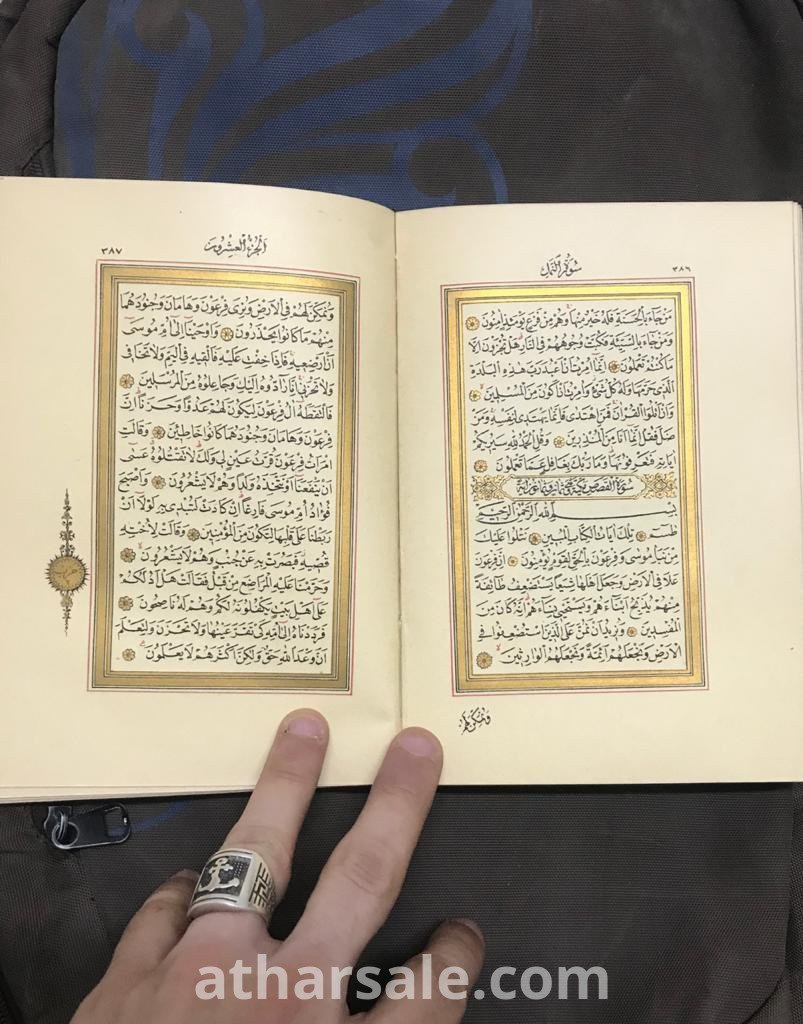 سُورَةُ النَّمْلِ
٣٨٦
مَنْ جَاءَ بِالْحَسَنَةِ فَلَهُ خَيْرٌ مِنْهَا وَهُمْ مِنْ فَزَعٍ يَوْمَئِذٍ اٰمِنُونَ
وَمَنْ جَاءَ بِالسَّيِّئَةِ فَكُبَّتْ وُجُوهُهُمْ فِي النَّارِ هَلْ تُجْزَوْنَ اِلَّا
مَا كُنْتُمْ تَعْمَلُونَ اِنَّمَا اُمِرْتُ اَنْ اَعْبُدَ رَبَّ هٰذِهِ الْبَلْدَةِ
الَّذِي حَرَّمَهَا وَلَهُ كُلُّ شَيْءٍ وَاُمِرْتُ اَنْ اَكُونَ مِنَ الْمُسْلِمِينَ
وَاَنْ اَتْلُوَا الْقُرْاٰنَ فَمَنِ اهْتَدٰى فَاِنَّمَا يَهْتَدِي لِنَفْسِهِ وَمَنْ
ضَلَّ فَقُلْ اِنَّمَا اَنَا مِنَ الْمُنْذِرِينَ وَقُلِ الْحَمْدُ لِلّٰهِ سَيُرِيكُمْ
اٰيَاتِهِ فَتَعْرِفُونَهَا وَمَا رَبُّكَ بِغَافِلٍ عَمَّا تَعْمَلُونَ
سُورَةُ الْقَصَصِ مَكِّيَّةٌ وَهِيَ ثَمَانٌ وَثَمَانُونَ اٰيَةً
بِسْمِ اللّٰهِ الرَّحْمٰنِ الرَّحِيمِ
طٰسٓمٓ تِلْكَ اٰيَاتُ الْكِتَابِ الْمُبِينِ نَتْلُوا عَلَيْكَ
مِنْ نَبَاِ مُوسٰى وَفِرْعَوْنَ بِالْحَقِّ لِقَوْمٍ يُؤْمِنُونَ اِنَّ فِرْعَوْنَ
عَلَا فِي الْاَرْضِ وَجَعَلَ اَهْلَهَا شِيَعًا يَسْتَضْعِفُ طَائِفَةً
مِنْهُمْ يُذَبِّحُ اَبْنَاءَهُمْ وَيَسْتَحْيِي نِسَاءَهُمْ اِنَّهُ كَانَ مِنَ
الْمُفْسِدِينَ وَنُرِيدُ اَنْ نَمُنَّ عَلَى الَّذِينَ اسْتُضْعِفُوا فِي
الْاَرْضِ وَنَجْعَلَهُمْ اَئِمَّةً وَنَجْعَلَهُمُ الْوَارِثِينَ
وَنُمَكِّنَ لَهُمْ
اَلْجُزْءُ الْعِشْرُونَ
٣٨٧
وَنُمَكِّنَ لَهُمْ فِي الْاَرْضِ وَنُرِيَ فِرْعَوْنَ وَهَامَانَ وَجُنُودَهُمَا
مِنْهُمْ مَا كَانُوا يَحْذَرُونَ وَاَوْحَيْنَا اِلٰى اُمِّ مُوسٰى
اَنْ اَرْضِعِيهِ فَاِذَا خِفْتِ عَلَيْهِ فَاَلْقِيهِ فِي الْيَمِّ وَلَا تَخَافِي
وَلَا تَحْزَنِي اِنَّا رَادُّوهُ اِلَيْكِ وَجَاعِلُوهُ مِنَ الْمُرْسَلِينَ
فَالْتَقَطَهُ اٰلُ فِرْعَوْنَ لِيَكُونَ لَهُمْ عَدُوًّا وَحَزَنًا اِنَّ
فِرْعَوْنَ وَهَامَانَ وَجُنُودَهُمَا كَانُوا خَاطِئِينَ وَقَالَتِ
امْرَاَتُ فِرْعَوْنَ قُرَّتُ عَيْنٍ لِي وَلَكَ لَا تَقْتُلُوهُ عَسٰى
اَنْ يَنْفَعَنَا اَوْ نَتَّخِذَهُ وَلَدًا وَهُمْ لَا يَشْعُرُونَ وَاَصْبَحَ
فُؤَادُ اُمِّ مُوسٰى فَارِغًا اِنْ كَادَتْ لَتُبْدِي بِهِ لَوْلَا اَنْ
رَبَطْنَا عَلٰى قَلْبِهَا لِتَكُونَ مِنَ الْمُؤْمِنِينَ وَقَالَتْ لِاُخْتِهِ
قُصِّيهِ فَبَصُرَتْ بِهِ عَنْ جُنُبٍ وَهُمْ لَا يَشْعُرُونَ
وَحَرَّمْنَا عَلَيْهِ الْمَرَاضِعَ مِنْ قَبْلُ فَقَالَتْ هَلْ اَدُلُّكُمْ
عَلٰى اَهْلِ بَيْتٍ يَكْفُلُونَهُ لَكُمْ وَهُمْ لَهُ نَاصِحُونَ
فَرَدَدْنَاهُ اِلٰى اُمِّهِ كَيْ تَقَرَّ عَيْنُهَا وَلَا تَحْزَنَ وَلِتَعْلَمَ
اَنَّ وَعْدَ اللّٰهِ حَقٌّ وَلٰكِنَّ اَكْثَرَهُمْ لَا يَعْلَمُونَ
atharsale.com